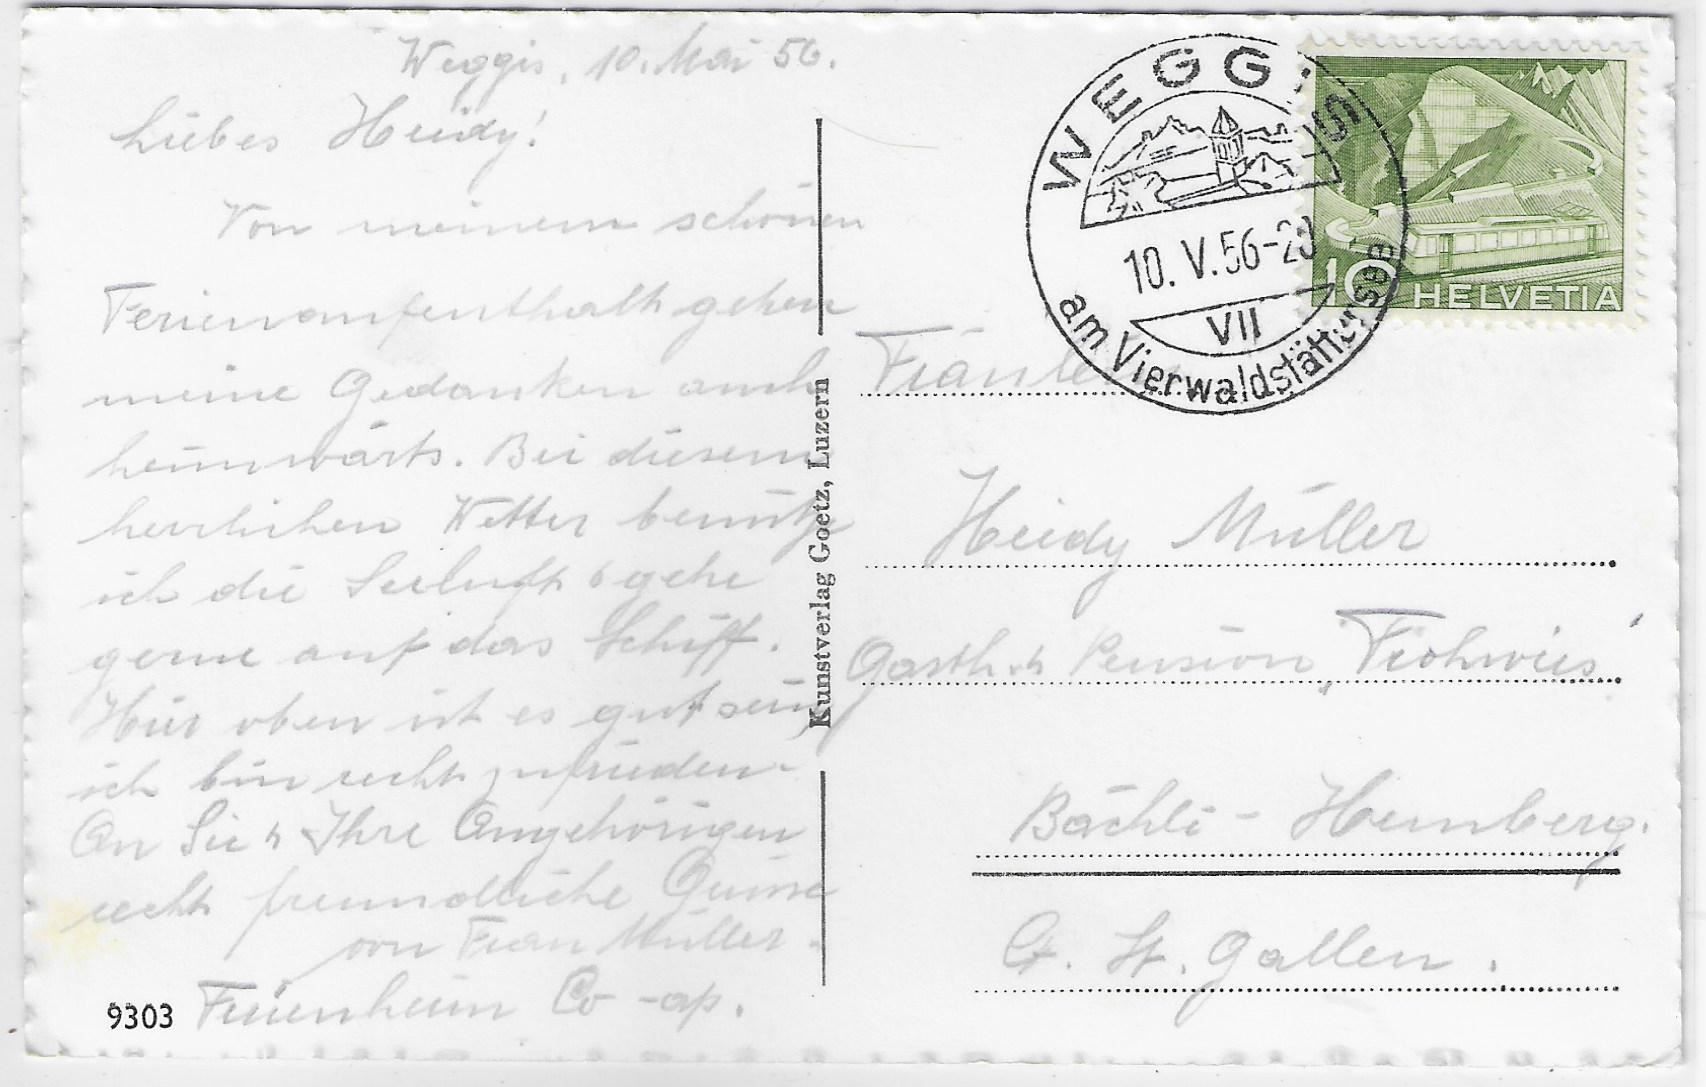 Weggis, 10. Mai 56.
Liebes Heidy!
Von meinem schönen
Ferienaufenthalt gehen
meine Gedanken auch
heimwärts. Bei diesem
herrlichen Wetter benütze
ich die Seeluft & gehe
gerne auf das Schiff.
Hier oben ist es gut sein,
ich bin recht zufrieden.
An Sie & Ihre Angehörigen
recht freundliche Grüsse
von Frau Müller.
Ferienheim Co-op.
9303
Kunstverlag Goetz, Luzern
WEGGIS
10. V. 56-20
VII
am Vierwaldstättersee
10 HELVETIA
Fräulein
Heidy Müller
Gasth. & Pension, Frohwies
Bächli - Hemberg.
Ct. St. Gallen.